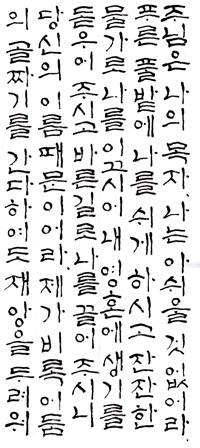 주님은 나의 목자. 나는 아쉬울 것 없어라.
푸른 풀밭에 나를 쉬게 하시고 잔잔한
물가로 나를 이끄시어 내 영혼에 생기를
돋우어 주시고 바른길로 나를 끌어 주시니
당신의 이름 때문이어라. 제가 비록 어둠
의 골짜기를 간다 하여도 재앙을 두려워